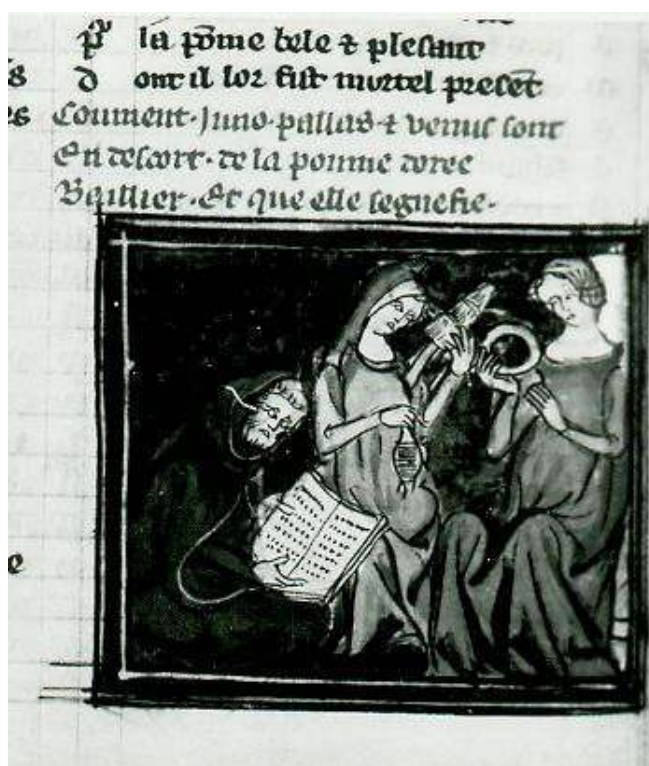 p̃ la põme bele ⁊ plesant
D ont il lor fist mortel presẽt
Coument · Juno · pallas ⁊ venus sont
En descort · de la pomme doree
Baillier · Et que elle segnefie ·